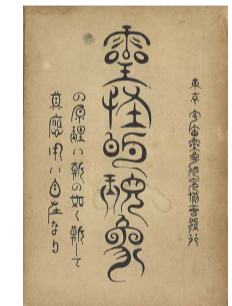 東京 宇宙霊象研究協会発行
霊怪的現象
の原理ハ斯の如く斬して
真應用ハ自在なり